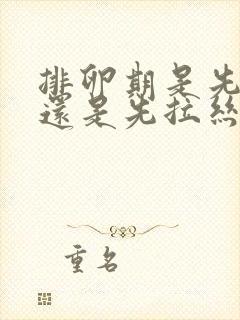 排卵期是先
還是先拉絲
重名